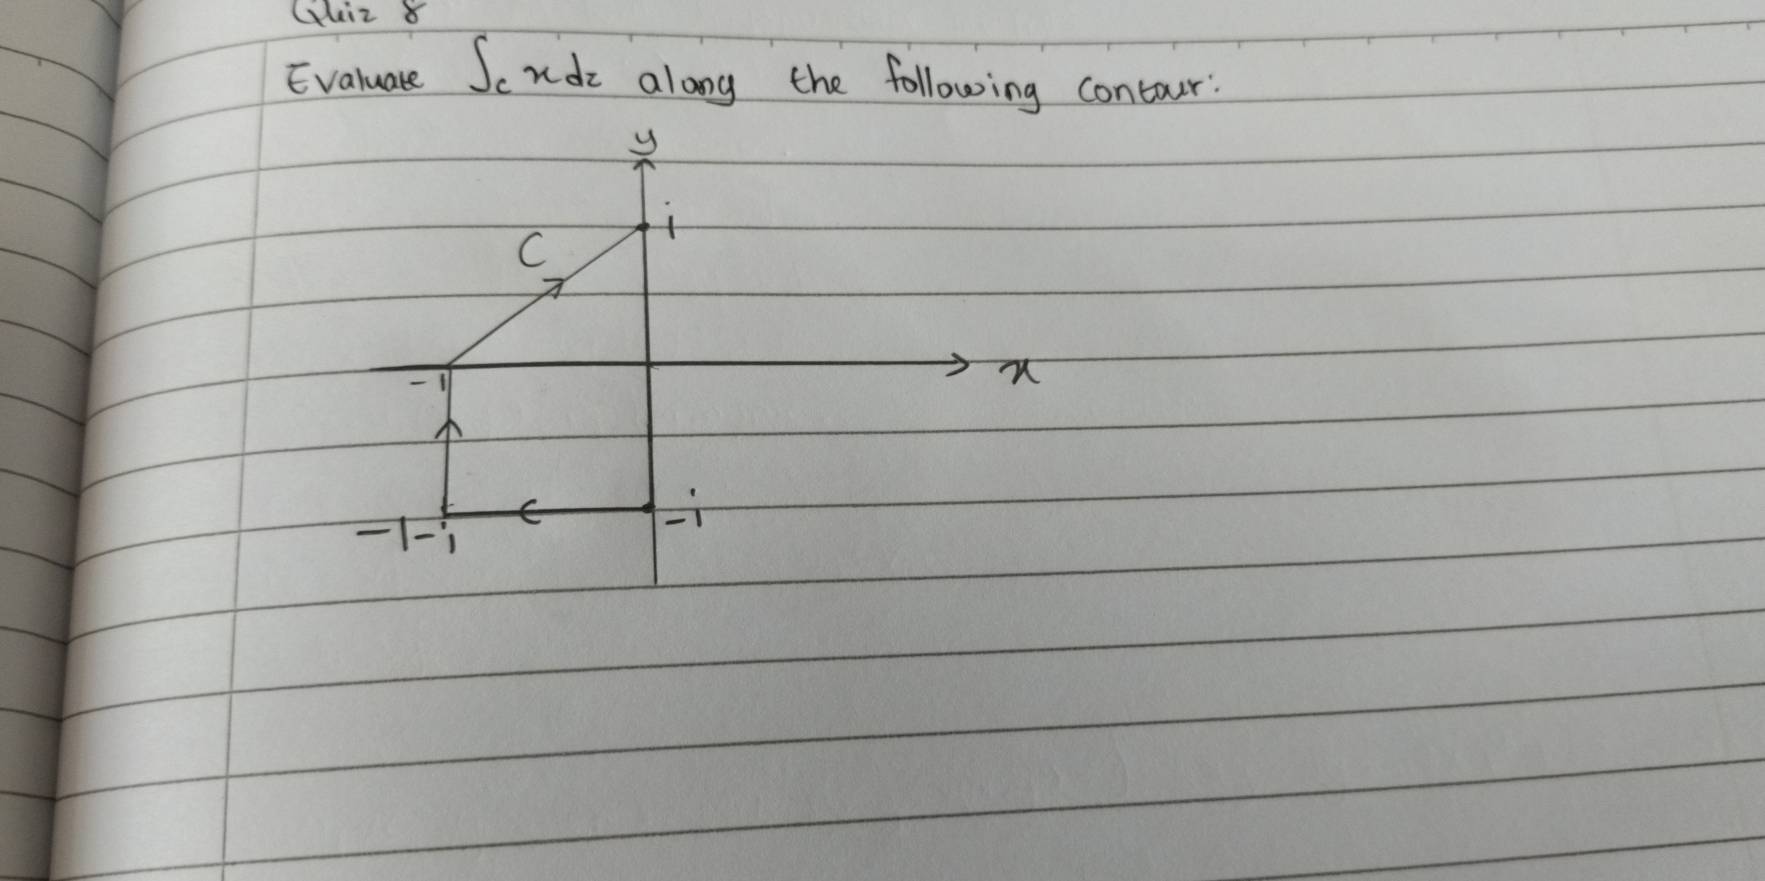 Quiz 8
Evaluate ∫c x dz along the following contour:
y
i
C
-1
x
-1-i
-i